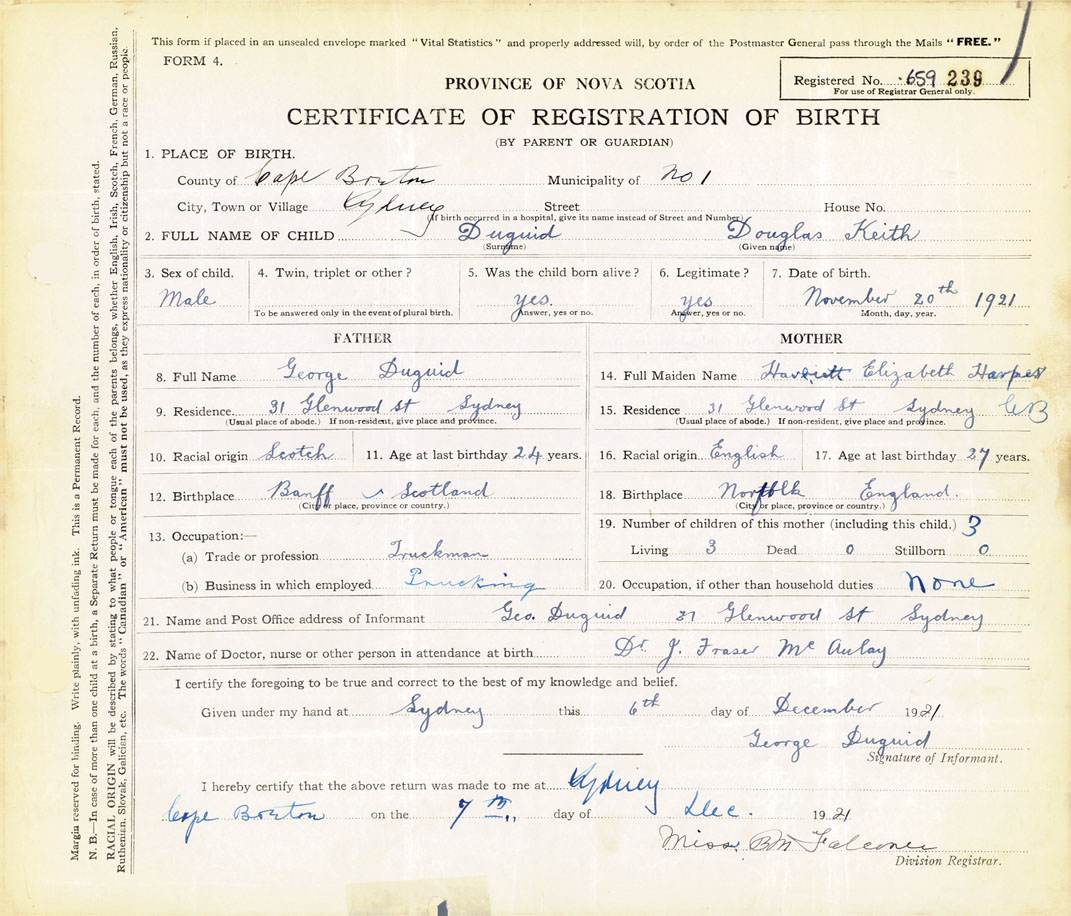 This form if placed in an unsealed envelope marked "Vital Statistics" and properly addressed will, by order of the Postmaster General pass through the Mails "FREE."
FORM 4.
Registered No. 659 239
For use of Registrar General only.
PROVINCE OF NOVA SCOTIA
CERTIFICATE OF REGISTRATION OF BIRTH
(BY PARENT OR GUARDIAN)
1. PLACE OF BIRTH.
County of Cape Breton Municipality of No 1
City, Town or Village Sydney Street House No.
(If birth occurred in a hospital, give its name instead of Street and Number)
2. FULL NAME OF CHILD Duguid Douglas Keith
(Surname) (Given name)
3. Sex of child. 4. Twin, triplet or other? 5. Was the child born alive? 6. Legitimate? 7. Date of birth.
Male yes. yes November 20th 1921
To be answered only in the event of plural birth. Answer, yes or no. Answer, yes or no. Month, day, year.
FATHER MOTHER
8. Full Name George Duguid 14. Full Maiden Name Harriett Elizabeth Harper
9. Residence 31 Glenwood St Sydney 15. Residence 31 Glenwood St Sydney CB
(Usual place of abode.) If non-resident, give place and province. (Usual place of abode.) If non-resident, give place and province.
10. Racial origin Scotch 11. Age at last birthday 24 years. 16. Racial origin English 17. Age at last birthday 27 years.
12. Birthplace Banff Scotland 18. Birthplace Norfolk England.
(City or place, province or country.) (City or place, province or country.)
13. Occupation:— 19. Number of children of this mother (including this child.) 3
(a) Trade or profession Truckman Living 3 Dead 0 Stillborn 0
(b) Business in which employed Trucking 20. Occupation, if other than household duties None
21. Name and Post Office address of Informant Geo. Duguid 31 Glenwood St Sydney
22. Name of Doctor, nurse or other person in attendance at birth Dr. J. Fraser McAulay
I certify the foregoing to be true and correct to the best of my knowledge and belief.
Given under my hand at Sydney this 6th day of December 1921
George Duguid
Signature of Informant.
I hereby certify that the above return was made to me at Sydney
Cape Breton on the 7th day of Dec. 1921
Miss BM Falconer
Division Registrar.
Margin reserved for binding. Write plainly, with unfading ink. This is a Permanent Record.
N. B.—In case of more than one child at a birth, a Separate Return must be made for each, and the number of each, in order of birth, stated.
RACIAL ORIGIN will be described by stating to what people or tongue each of the parents belongs, whether English, Irish, Scotch, French, German, Russian,
Ruthenian, Slovak, Galician, etc. The words "Canadian" or "American" must not be used, as they express nationality or citizenship but not a race or people.